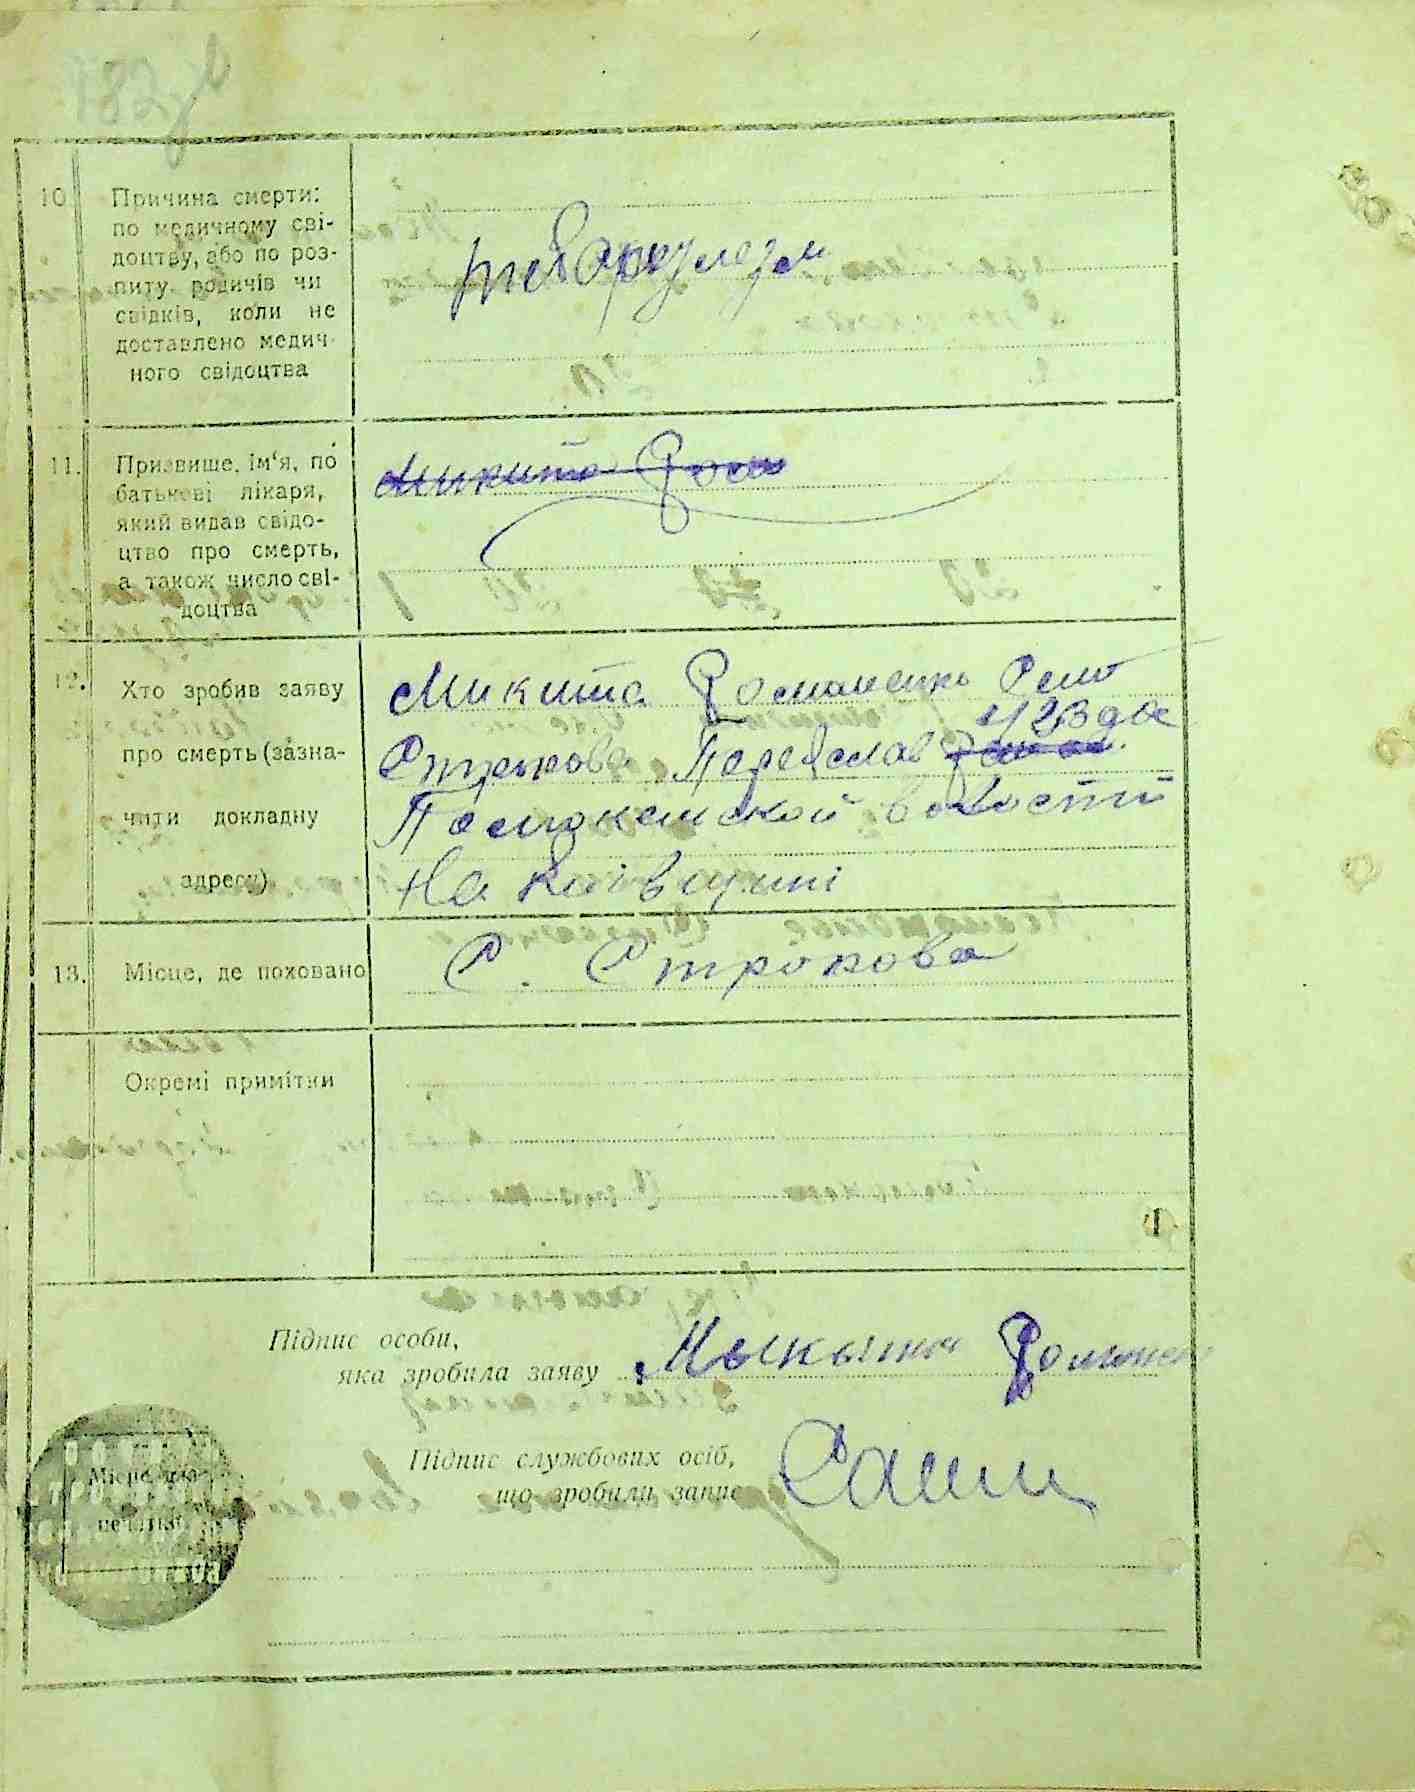 182
10. Причина смерти:
по медичному сві-
доцтву, або по роз-
питу родичів чи
свідків, коли не
доставлено медич-
ного свідоцтва
11. Призвище, ім'я, по
батькові лікаря,
який видав свідо-
цтво про смерть,
а також число сві-
доцтва
Микита Ром
12. Хто зробив заяву
про смерть (зазна-
чити докладну
адресу)
Микита Романенко Село
Строкова Переяслав
волости
На Київщині
13. Місце, де поховано
С. Строкова
Окремі примітки
Підпис особи,
яка зробила заяву Мыкыта Романен
Підпис службових осіб,
що зробили запис
Місце для
печатки